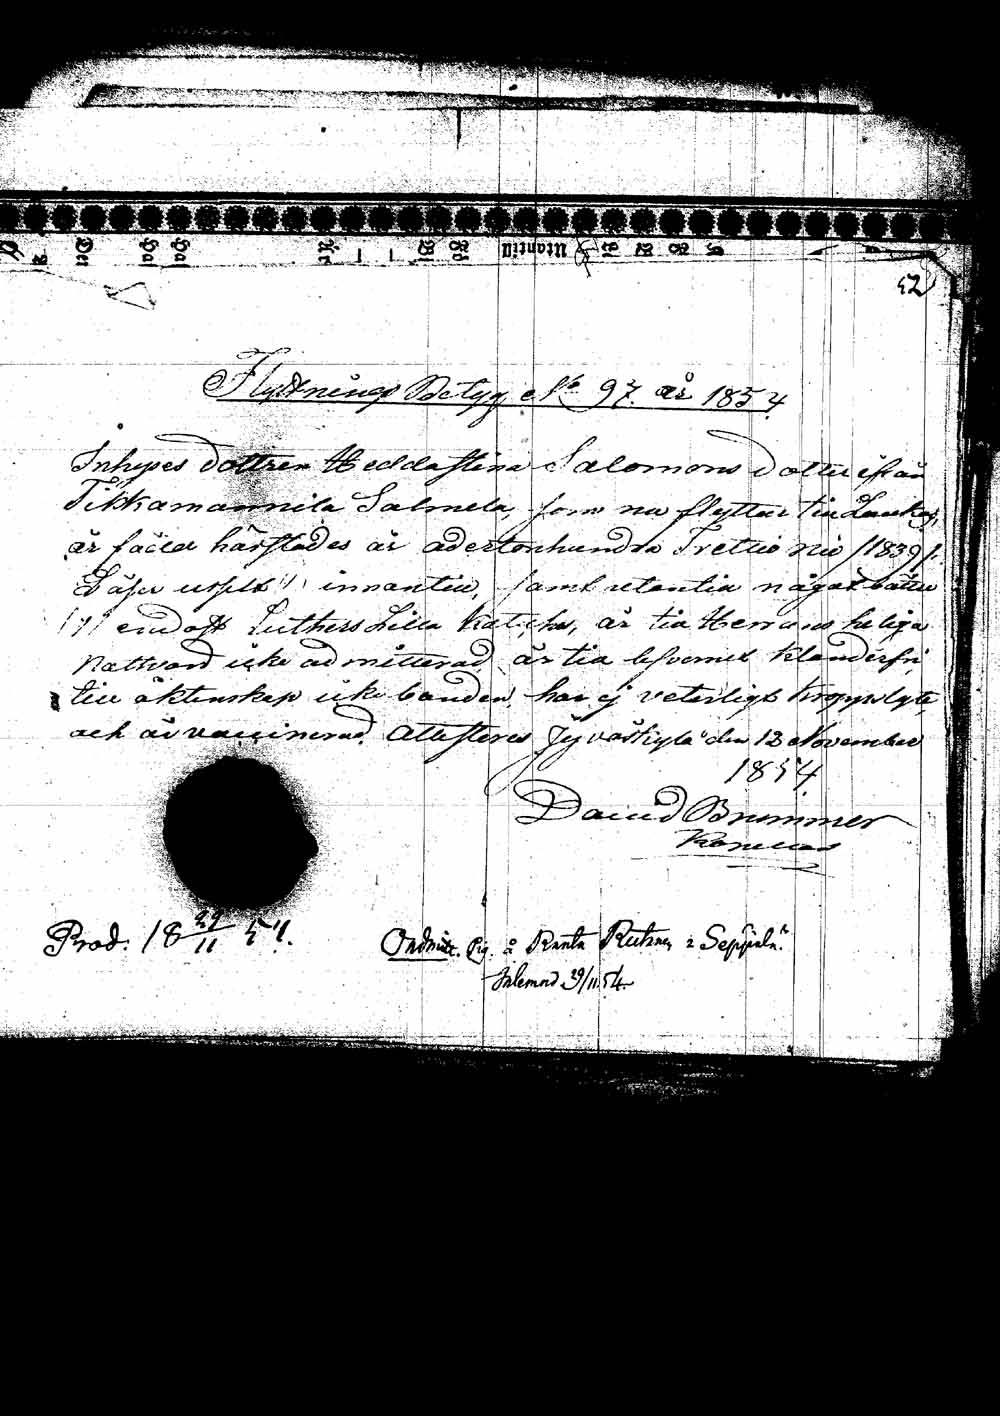 52
Flyttnings Betyg No 97. år 1854.
Inhyses dottren Heddastina Salomons dotter ifrån
Tikkamannila Salmela, som nu flyttar till Laukas,
är född härstädes år adertonhundra Trettio nio /1839/.
Läser uselt innantill, samt utantill något bättre
endast Luthers Lilla Katches, är till Herrans heliga
Nattvard icke admitterad, är till lefvernet klanderfri,
till äktenskap icke bunden, har ej veterligt kroppslyte,
och är vaccinerad. Attesteras Jyväskylä den 13 November
1854
David Brummer
Prod. 18 29/11 54.
Pig. å Ranta
29/11 54.